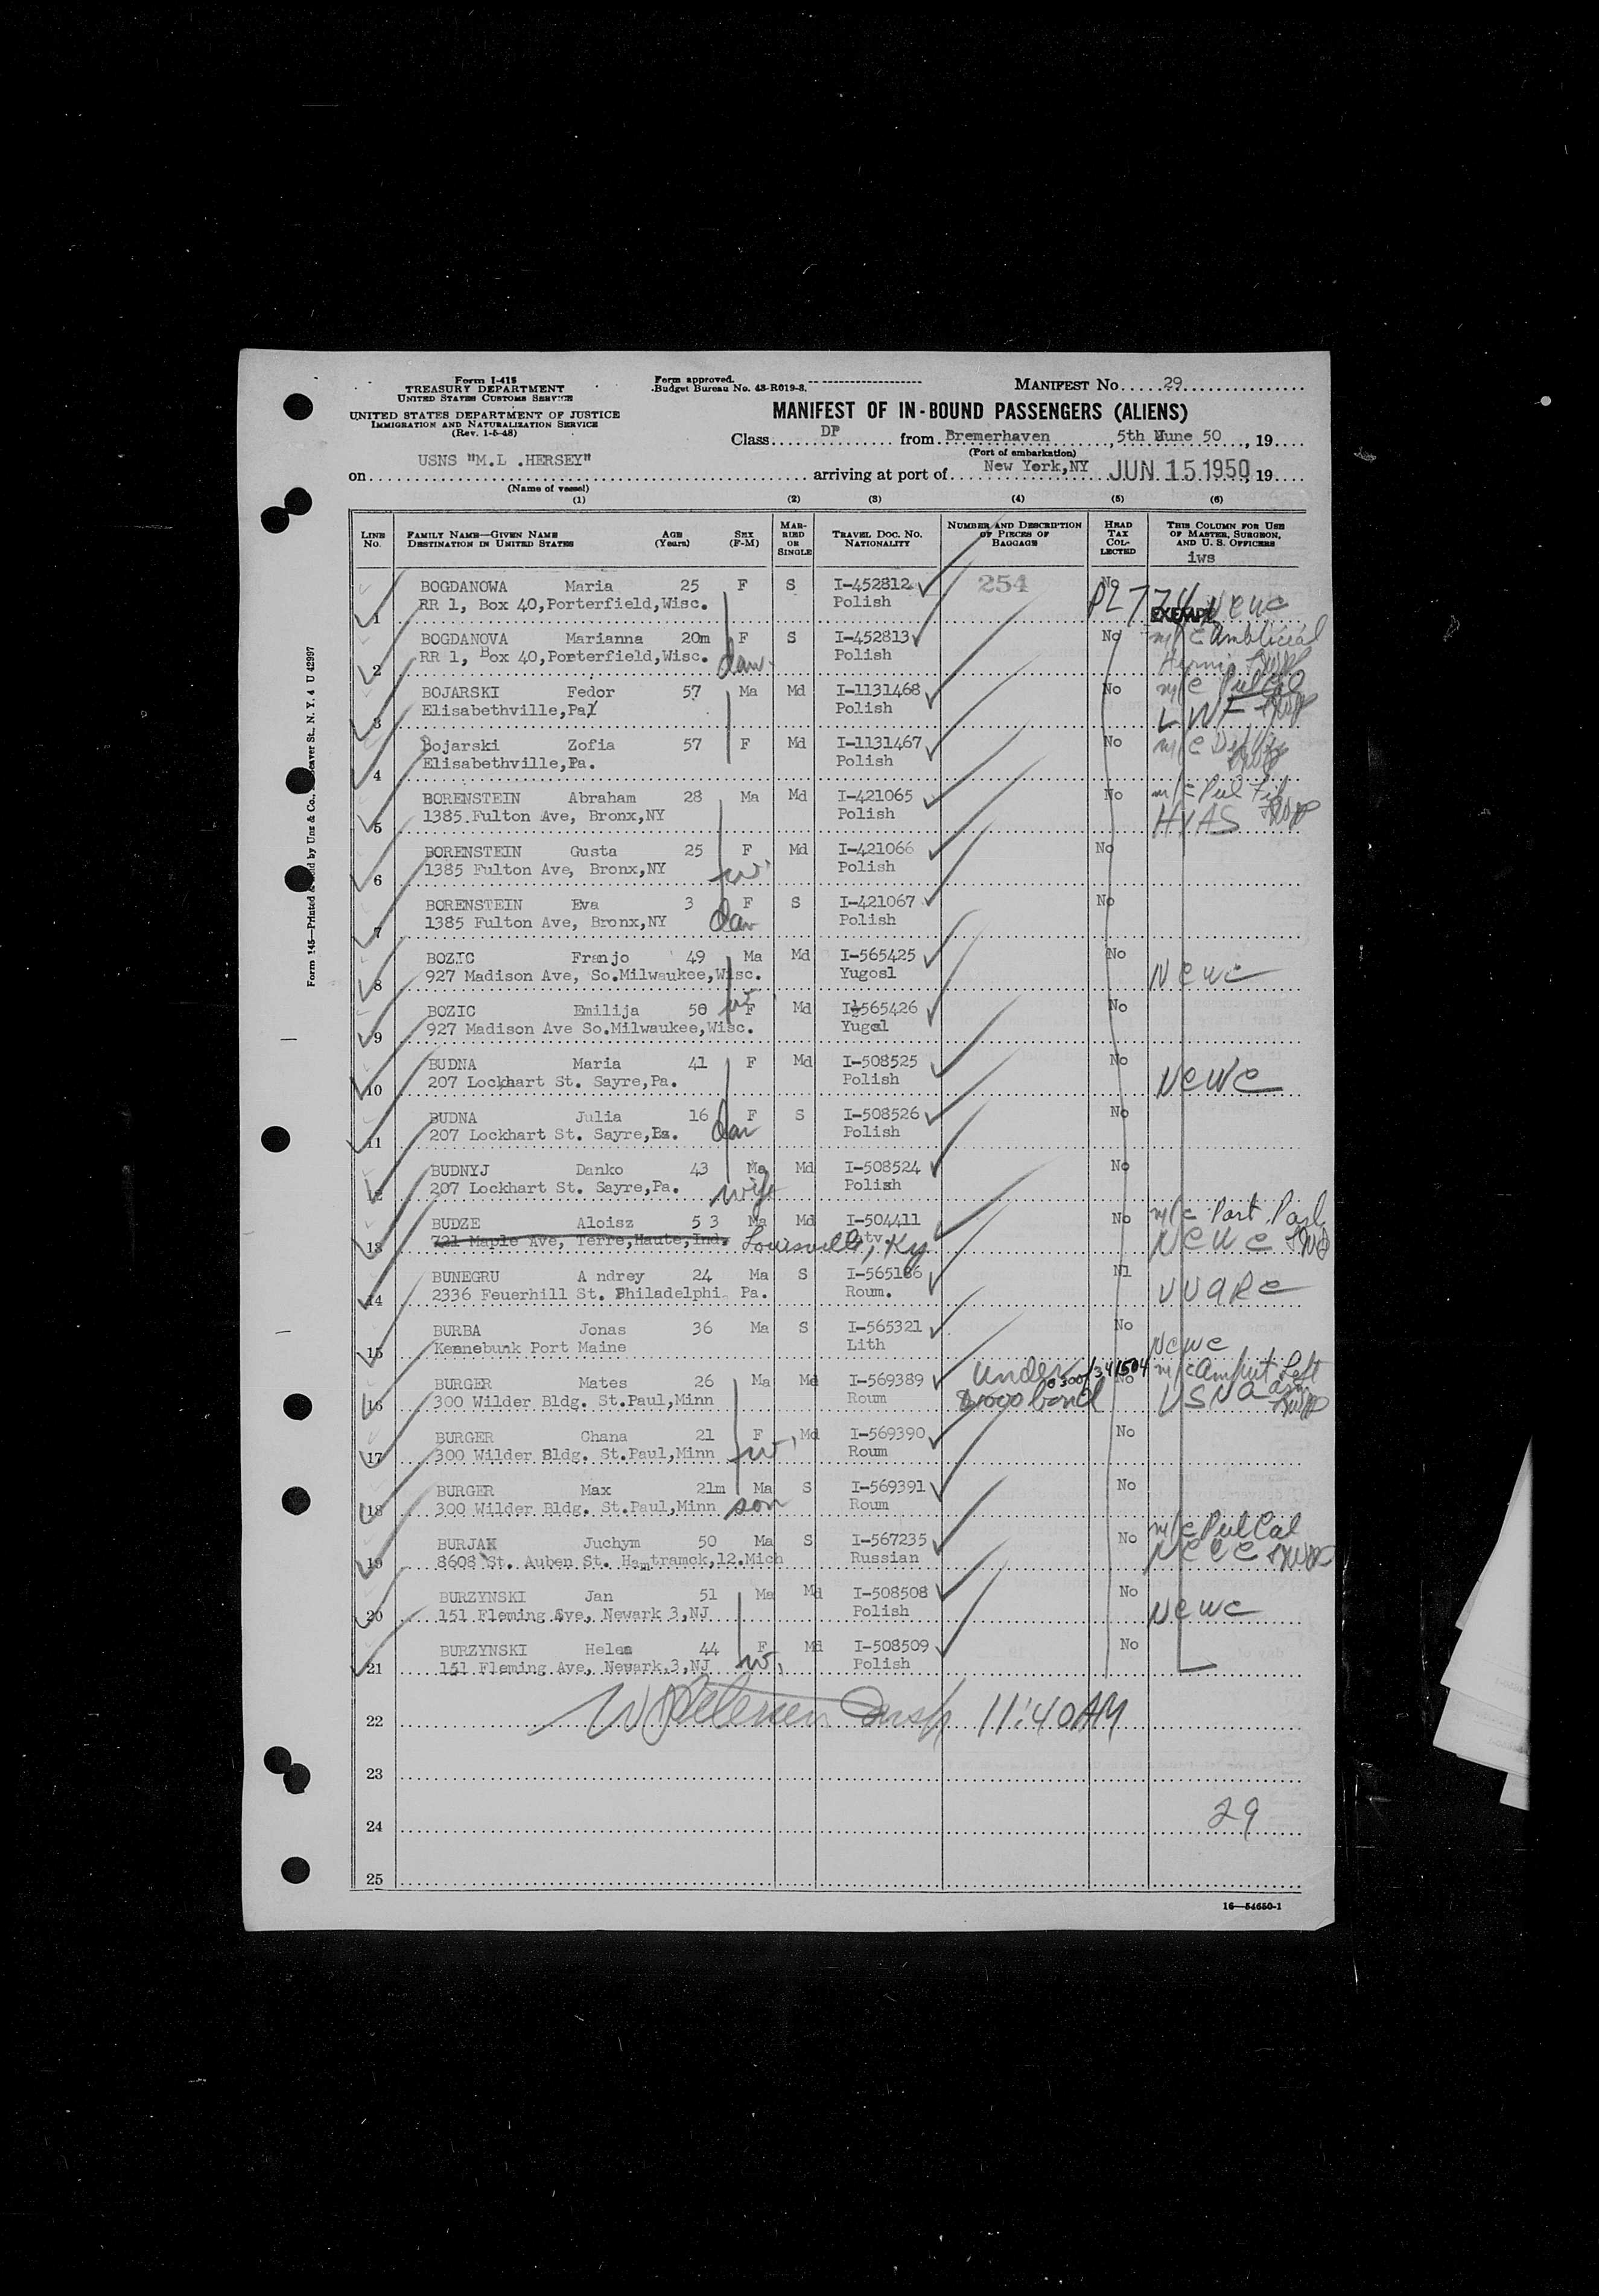 Form I-415
TREASURY DEPARTMENT
UNITED STATES CUSTOMS SERVICE
UNITED STATES DEPARTMENT OF JUSTICE
IMMIGRATION AND NATURALIZATION SERVICE
(Rev. 1-5-48)
Form approved.
Budget Bureau No. 43-R019-3.
MANIFEST No. 29
MANIFEST OF IN-BOUND PASSENGERS (ALIENS)
Class DP from Bremerhaven, 5th June 50, 19
(Port of embarkation)
on USNS "M.L .HERSEY" arriving at port of New York,NY JUN 15 1950, 19
(Name of vessel)
(1) (2) (3) (4) (5) (6)
LINE No. FAMILY NAME—GIVEN NAME DESTINATION IN UNITED STATES AGE (Years) SEX (F-M) MARRIED OR SINGLE TRAVEL DOC. NO. NATIONALITY NUMBER AND DESCRIPTION OF PIECES OF BAGGAGE HEAD TAX COLLECTED THIS COLUMN FOR USE OF MASTER, SURGEON, AND U. S. OFFICERS
iws
1 BOGDANOWA Maria 25 F S I-452812 254 No
RR 1, Box 40,Porterfield,Wisc. Polish PL 774 EXEMPT NCWC
2 BOGDANOVA Marianna 20m F S I-452813 No m/c Amblicial
RR 1, Box 40,Porterfield,Wisc. dau. Polish Hernia
3 BOJARSKI Fedor 57 Ma Md I-1131468 No m/c Pul Cal
Elisabethville,Pa Polish LWF
4 Bojarski Zofia 57 F Md I-1131467 No m/c
Elisabethville,Pa. Polish
5 BORENSTEIN Abraham 28 Ma Md I-421065 No m/c Pul Fib
1385 Fulton Ave, Bronx,NY Polish HIAS
6 BORENSTEIN Gusta 25 F Md I-421066 No
1385 Fulton Ave, Bronx,NY w Polish
7 BORENSTEIN Eva 3 F S I-421067 No
1385 Fulton Ave, Bronx,NY dau Polish
8 BOZIC Franjo 49 Ma Md I-565425 No
927 Madison Ave, So.Milwaukee,Wisc. Yugosl NCWC
9 BOZIC Emilija 50 w F Md I-565426 No
927 Madison Ave So.Milwaukee,Wisc. Yugol
10 BUDNA Maria 41 F Md I-508525 No
207 Lockhart St. Sayre,Pa. Polish NCWC
11 BUDNA Julia 16 F S I-508526 No
207 Lockhart St. Sayre,Pa. dau Polish
12 BUDNYJ Danko 43 Ma Md I-508524 No
207 Lockhart St. Sayre,Pa. wife Polish
13 BUDZE Aloisz 5 3 Ma Md I-504411 No m/c Part. Parl
721 Maple Ave, Terre,Haute,Ind. Louisville, Ky NCWC
14 BUNEGRU A ndrey 24 Ma S I-565186 Nl
2336 Feuerhill St. Philadelphi Pa. Roum. UUARC
15 BURBA Jonas 36 Ma S I-565321 No
Kennebunk Port Maine Lith NCWC
16 BURGER Mates 26 Ma Md I-569389 Under 0300/341504 No m/c Amput. Left arm
300 Wilder Bldg. St.Paul,Minn Roum bond USNA
17 BURGER Chana 21 F Md I-569390 No
300 Wilder Bldg. St.Paul,Minn w Roum
18 BURGER Max 21m Ma S I-569391 No
300 Wilder Bldg. St.Paul,Minn son Roum
19 BURJAK Juchym 50 Ma S I-567235 No m/c Pul Cal
8608 St. Auben St. Hamtramck,12.Mich Russian
20 BURZYNSKI Jan 51 Ma Md I-508508 No
151 Fleming Ave, Newark 3,NJ Polish NCWC
21 BURZYNSKI Helen 44 F Md I-508509 No
151 Fleming Ave, Newark.3,NJ w. Polish
22 Insp 11:40AM
23
24 29
25
16—54650-1